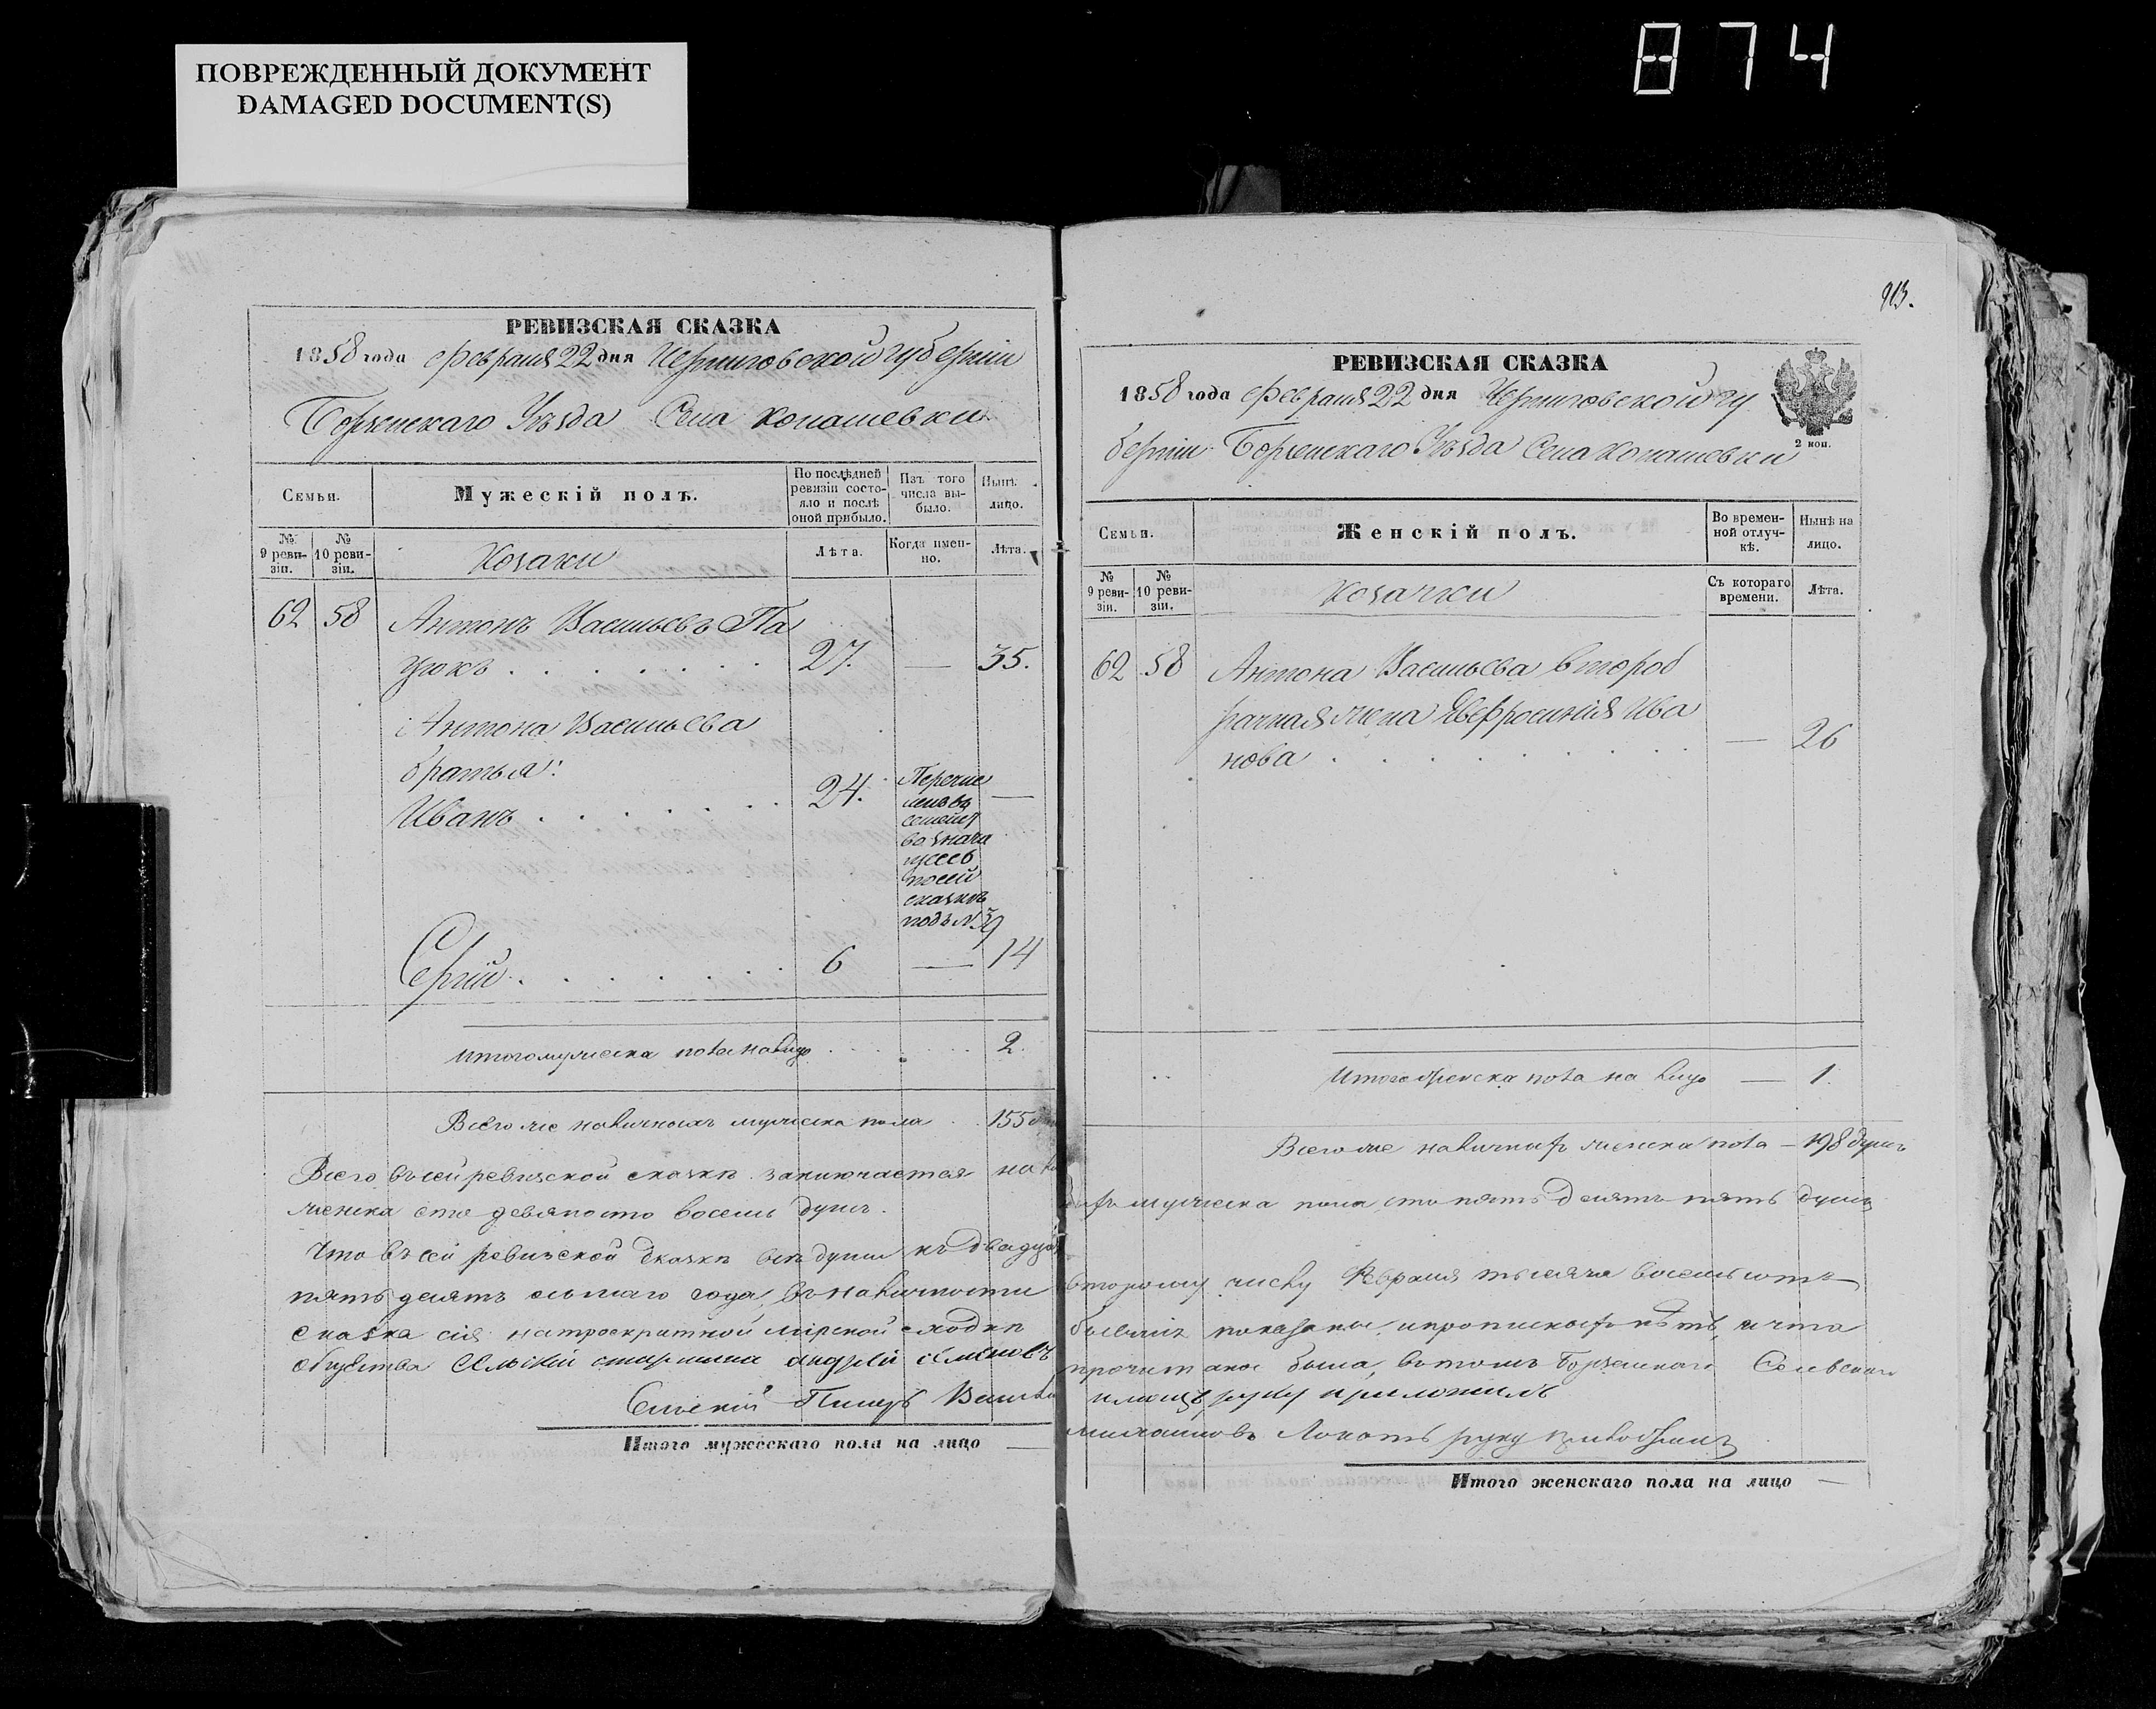 ПОВРЕЖДЕННЫЙ ДОКУМЕНТ
DAMAGED DOCUMENT(S)
874
РЕВИЗСКАЯ СКАЗКА
1858 года Февраля 22 дня Черниговской губерніи
Борзенскаго Уѣзда Села Конашевки
Семьи.
Мужескій полъ.
По послѣдней ревизіи состояло и послѣ оной прибыло.
Изъ того числа выбыло.
Нынѣ лицо.
№ 9 ревизіи.
№ 10 ревизіи.
Козаки
Лѣта.
Когда именно.
Лѣта.
62 58 Антонъ Васильевъ Па
цюкъ 27. — 35.
Антона Васильева
братья:
Иванъ 24. —
Перечис
ленъ въ
семейст
во знача
щееся
по сей
сказкѣ
подъ № 39
Сергій 6 — 14
Итого мужеска пола на лицо 2.
Всего же наличныхъ мужеска пола 155
Всего въ сей ревизской сказкѣ заключается на
женска сто девяносто восемь душъ.
Что въ сей ревизской сказкѣ всѣ души къ двадцать
пятьдесятъ осьмаго года, въ наличности
сказка сія на троекратной мірской сходкѣ
общества Сельскій старшина андрей семеновъ
Сельскій Писарь
Итого мужескаго пола на лицо —
913.
РЕВИЗСКАЯ СКАЗКА
1858 года Февраля 22 дня Черниговской гу
берніи Борзенскаго Уѣзда Села Конашевки
2 коп.
Семьи.
Женскій полъ.
Во временной отлучкѣ.
Нынѣ на лицо.
№ 9 ревизіи.
№ 10 ревизіи.
Козачки
Съ котораго времени.
Лѣта.
62 58 Антона Васильева второб
рачная жена Евфросинія Ива
нова — 26
Итого женска пола на лицо — 1.
Всего же наличныхъ женска пола — 198 душъ
мужеска пола сто пятьдесятъ пять душъ
второму числу Февраля тысяча восемьсотъ
бывшіе показаны, и прописныхъ нѣтъ, и что
прочитана была, въ томъ Борзенскаго Сельскаго
руку приложилъ
михайловъ руку приложилъ
Итого женскаго пола на лицо —